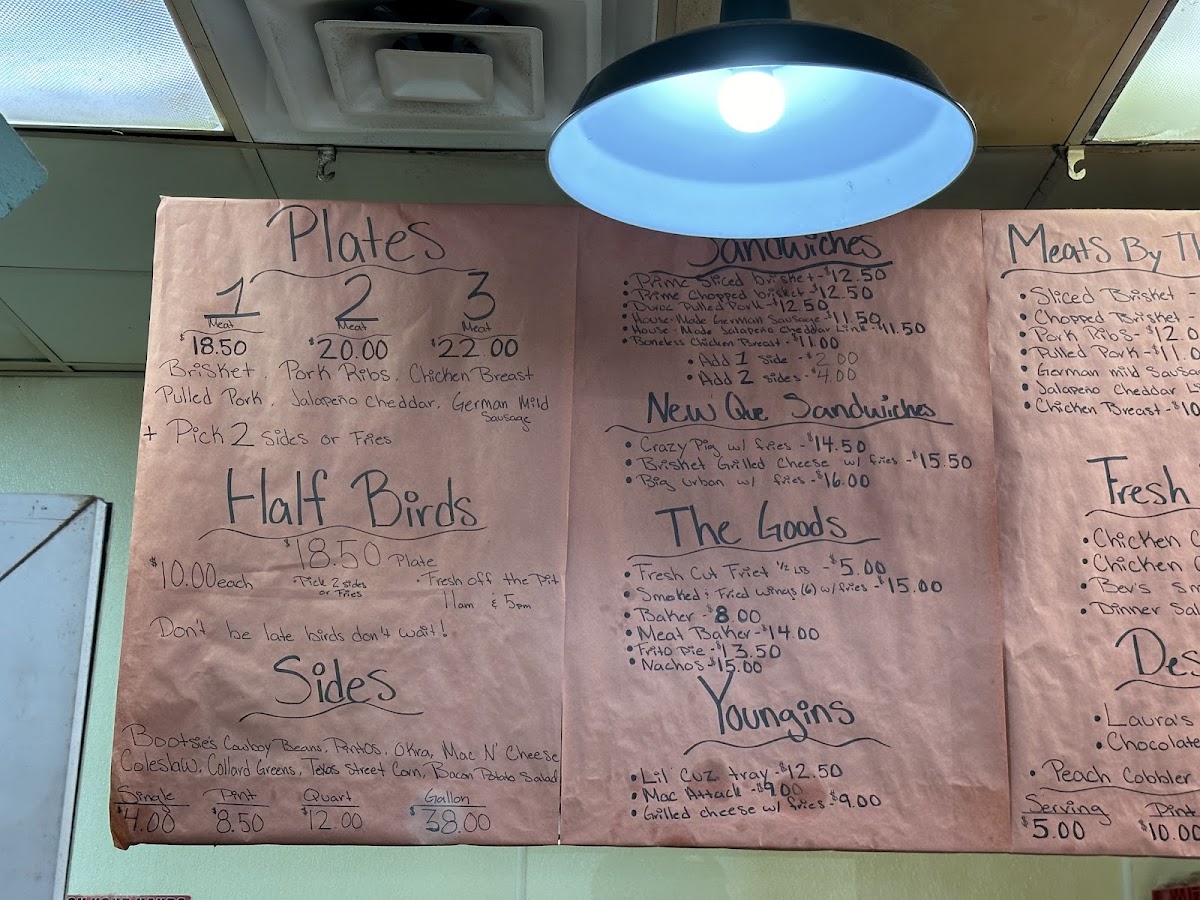 Plates
1 2 3
Meat Meat Meat
$18.50 $20.00 $22.00
Brisket, Pork Ribs, Chicken Breast
Pulled Pork, Jalapeño Cheddar, German Mild Sausage
+ Pick 2 Sides or Fries
Half Birds
$10.00 each
$18.50 Plate
•Pick 2 sides or Fries
•Fresh off the Pit 11am & 5pm
Don't be late birds don't wait!
Sides
Bootsie's Cowboy Beans, Pintos, Okra, Mac N' Cheese
Coleslaw, Collard Greens, Texas Street Corn, Bacon Potato Salad
Single Pint Quart Gallon
$4.00 $8.50 $12.00 $38.00
Sandwiches
• Prime Sliced brisket - $12.50
• Prime Chopped brisket - $12.50
• Duroc Pulled Pork - $12.50
• House-Made German Sausage - $11.50
• House-Made Jalapeño Cheddar Link - $11.50
• Boneless Chicken Breast - $11.00
• Add 1 Side - $2.00
• Add 2 sides - $4.00
New Que Sandwiches
• Crazy Pig w/ fries - $14.50
• Brisket Grilled Cheese w/ fries - $15.50
• Big Urban w/ fries - $16.00
The Goods
• Fresh Cut Friet 1/2 LB - $5.00
• Smoked & Fried Wings (6) w/ fries - $15.00
• Baker - $8.00
• Meat Baker - $14.00
• Frito Pie - $13.50
• Nachos $15.00
Youngins
• Lil' Cuz tray - $12.50
• Mac Attack - $9.00
• Grilled cheese w/ fries - $9.00
Meats By Th
• Sliced Brisket -
• Chopped Brisket -
• Pork Ribs - $12.0
• Pulled Pork - $11.0
• German mild Sausag
• Jalapeño Cheddar L
• Chicken Breast - $10
Fresh
• Chicken C
• Chicken
• Bev's Sm
• Dinner Sal
Des
• Laura's
• Chocolate
• Peach Cobbler
Serving Pint
$5.00 $10.00